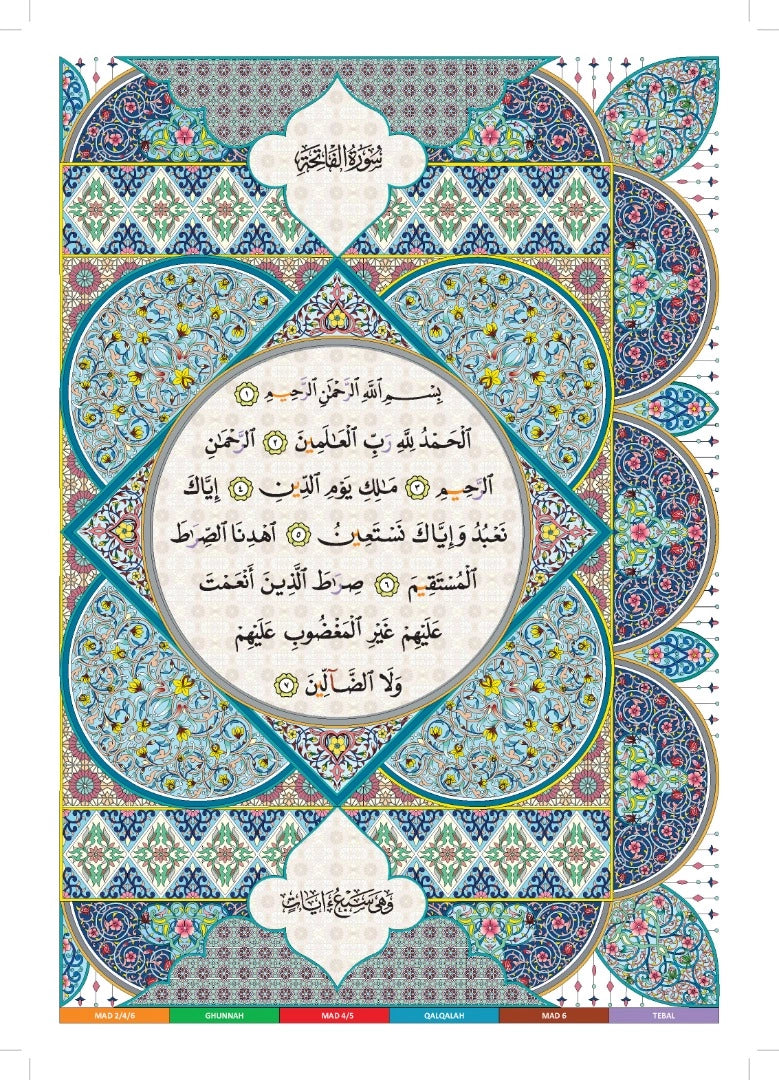 سُورَةُ الْفَاتِحَةِ
بِسْمِ اللَّهِ الرَّحْمَٰنِ الرَّحِيمِ ١
الْحَمْدُ لِلَّهِ رَبِّ الْعَالَمِينَ ٢ الرَّحْمَٰنِ
الرَّحِيمِ ٣ مَالِكِ يَوْمِ الدِّينِ ٤ إِيَّاكَ
نَعْبُدُ وَإِيَّاكَ نَسْتَعِينُ ٥ اهْدِنَا الصِّرَاطَ
الْمُسْتَقِيمَ ٦ صِرَاطَ الَّذِينَ أَنْعَمْتَ
عَلَيْهِمْ غَيْرِ الْمَغْضُوبِ عَلَيْهِمْ
وَلَا الضَّآلِّينَ ٧
وَهِيَ سَبْعُ ءَايَاتٍ
MAD 2/4/6 GHUNNAH MAD 4/5 QALQALAH MAD 6 TEBAL